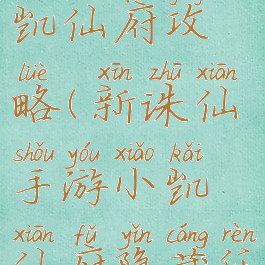 凯仙府攻
lüè xīn zhū xiān
略(新诛仙
shǒu yóu xiǎo kǎi
手游小凯
xiān fǔ yǐn cáng rèn
仙府隐藏任